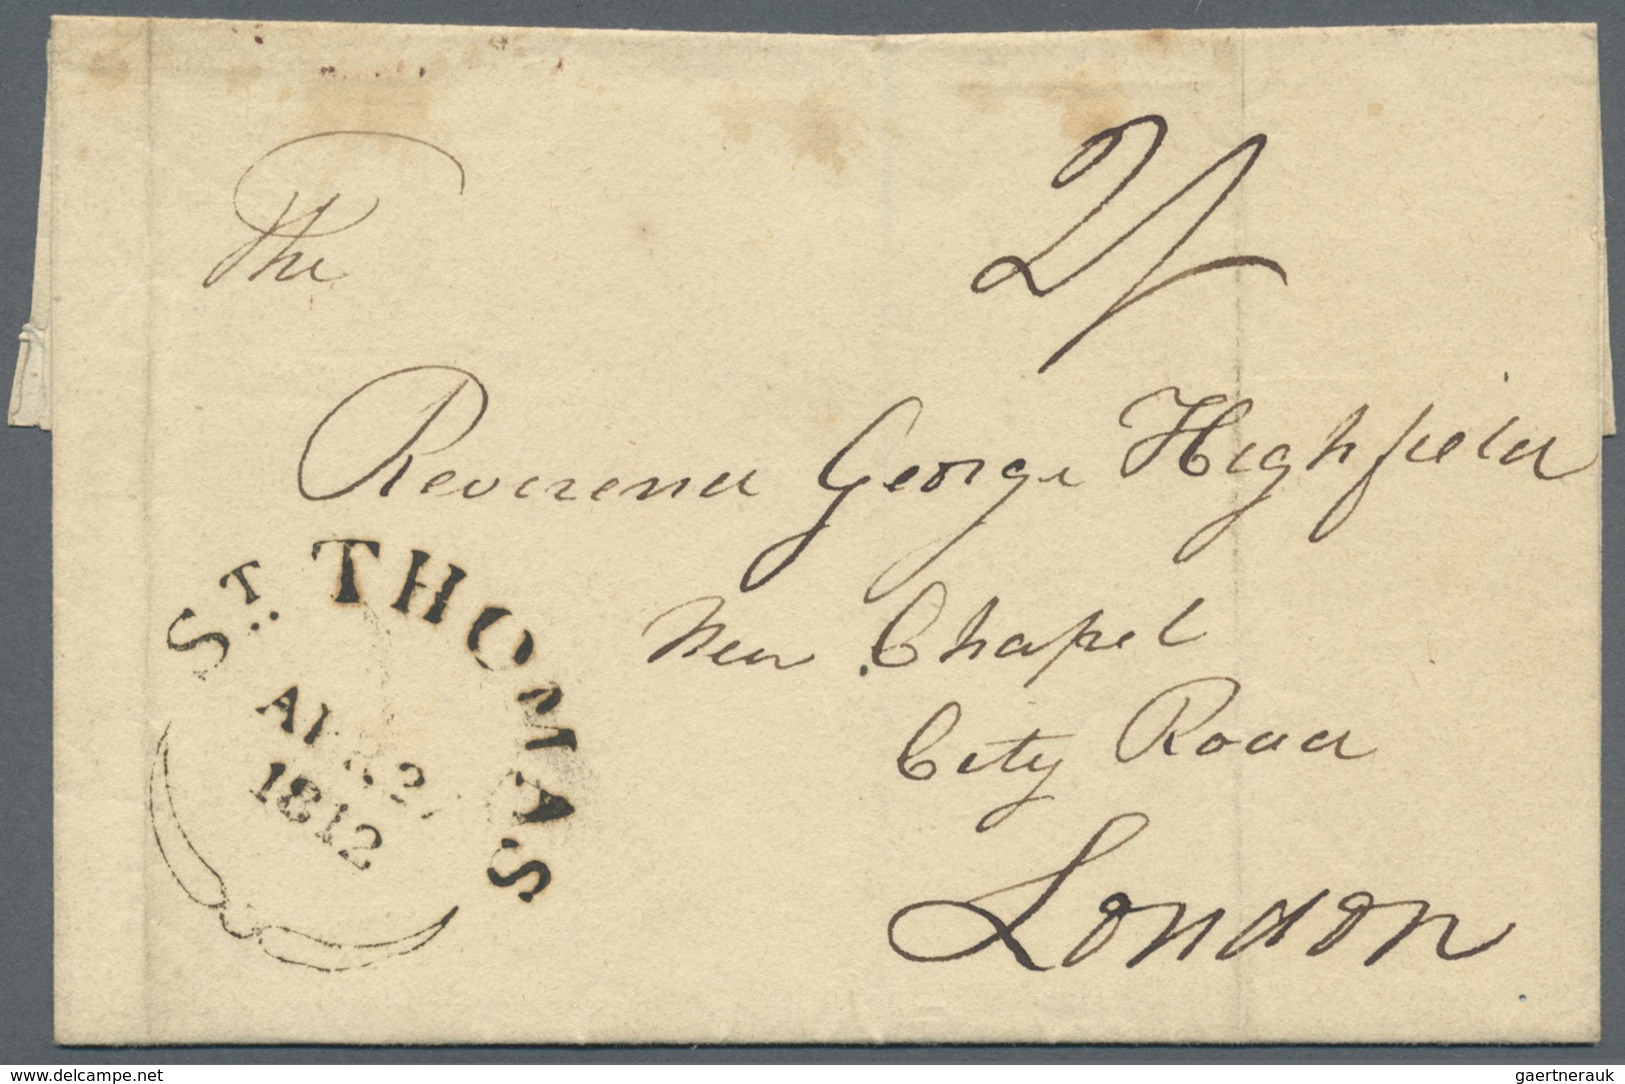 The
2/
Reverend George Highfield
New Chapel
City Road
London
ST. THOMAS
1812
www.delcampe.net
gaertnerauk